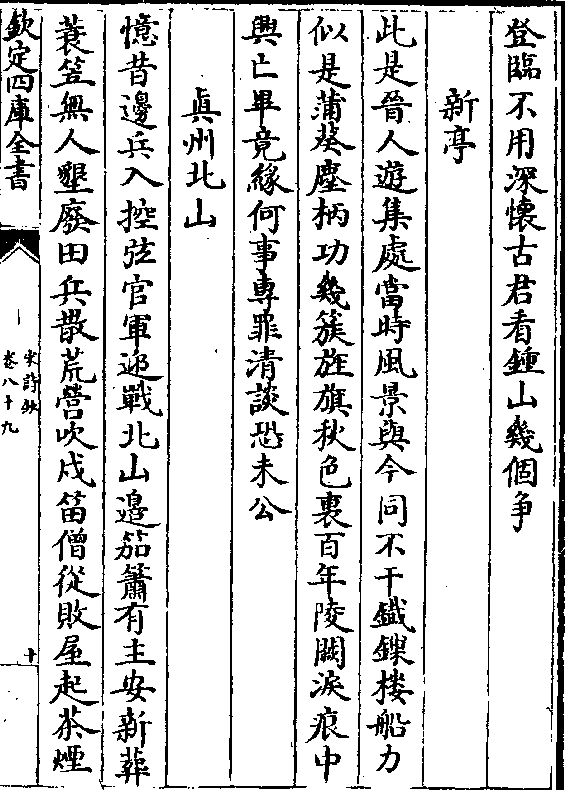 登臨不用深懷古君看鍾山幾個爭
新亭
此是晉人遊集處當時風景與今同不干鐵鏁樓船力
似是蒲葵麈柄功幾簇旌旗秋色裏百年陵闕淚痕中
興亡畢竟緣何事專罪清談恐未公
眞州北山
憶昔邊兵入控弦官軍迎戰北山邉笳簫有主安新葬
蓑笠無人墾廢田兵散荒營吹戍笛僧從敗屋起茶煙
欽定四庫全書
宋詩鈔
卷八十九
十